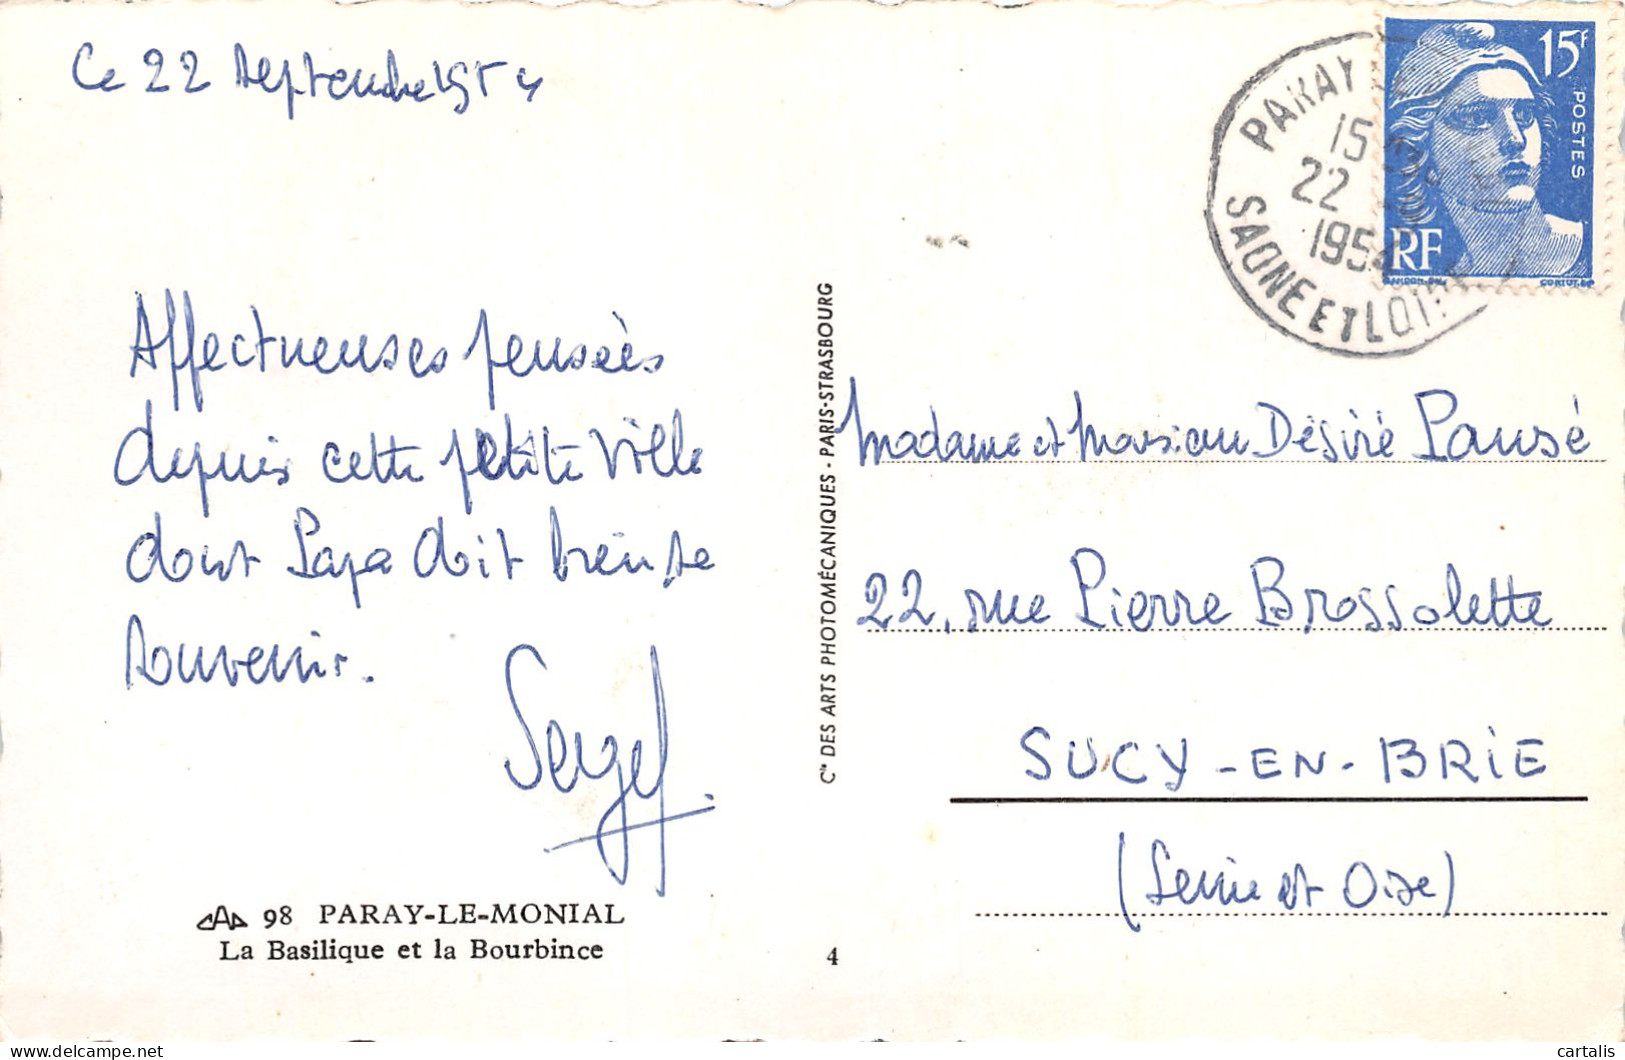 Ce 22 Septembre 1954
Affectueuses pensées
depuis cette petite ville
dont Papa doit bien se
souvenir.
98 PARAY-LE-MONIAL
La Basilique et la Bourbince
4
Cie DES ARTS PHOTOMÉCANIQUES - PARIS-STRASBOURG
PARAY
15
22
1954
SAONE ET LOIRE
15F
POSTES
RF
Madame et Monsieur Désiré Pausé
22, rue Pierre Brossolette
SUCY-EN-BRIE
(Seine et Oise)
cartalis